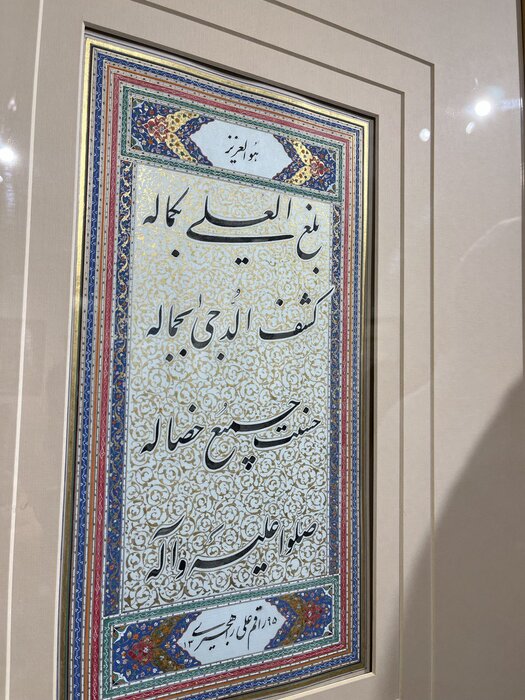 هو العزیز
بلغ العلی بکماله
کشف الدجی بجماله
حسنت جمیع خصاله
صلوا علیه وآله
راقم علی راهجیری ۱۳۹۵